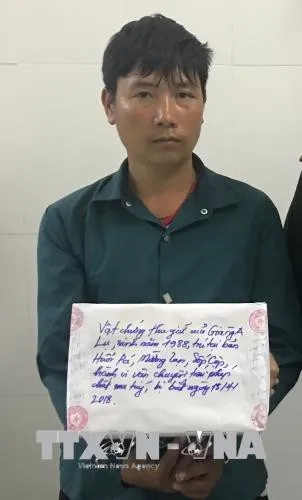 Vật chứng thu giữ mở Giàng A
Lụ, sinh năm 1988, trú tại bản
Huổi Pá, Mường Lạn, Sốp Cộp,
hành vi vận chuyển trái phép
chất ma tuý, bị bắt ngày 13/4/
2018.
TTXVN - VNA
Vietnam News Agency